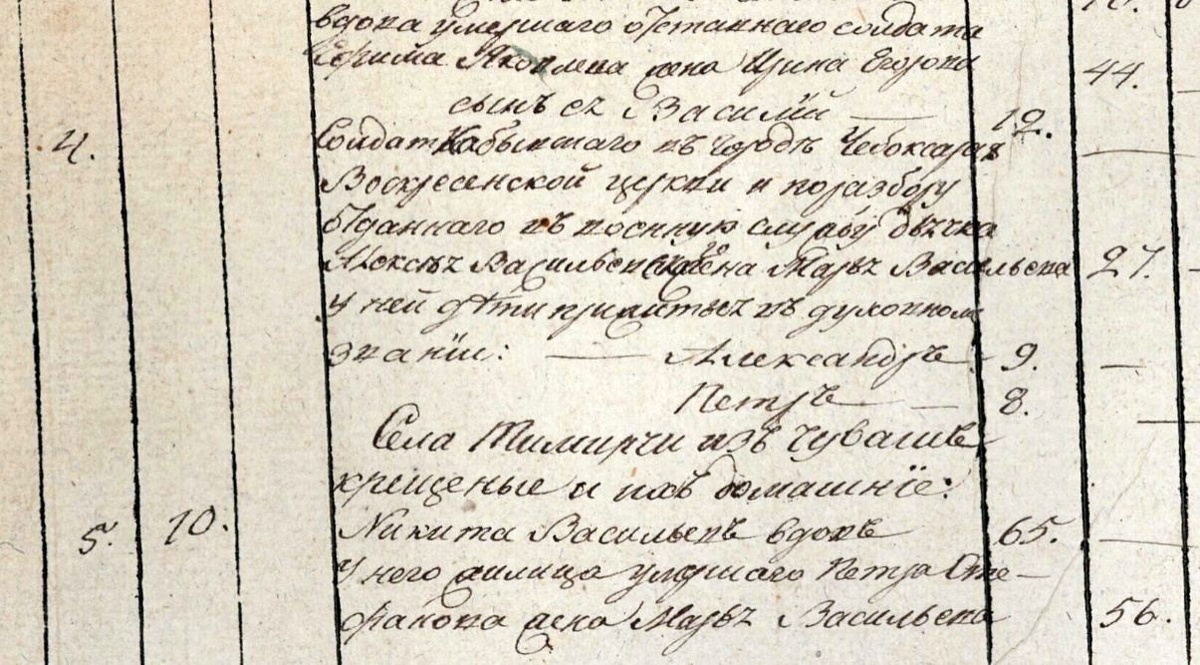 вдова умершаго отставнаго солдата
Ефима Яковлева жена Ирина Егорова 44.
сынъ ея Василій — 12.
4. Солдатка бывшаго въ городѣ Чебоксарах
Воскресенской церкви и поразбору
отданнаго въ военную службу дьячка
Алексѣя Васильева жена Марья Васильева 27.
у ней дѣти при въ духовном
званіи: — Александръ 9. —
Петръ — 8.
Села Тимирчи изъ Чувашъ
крещеные и ихъ домашніе:
5. 10. Никита Васильевъ вдовъ 65.
У него умершаго Петра Сте-
фанова жена Марья Васильева 56.